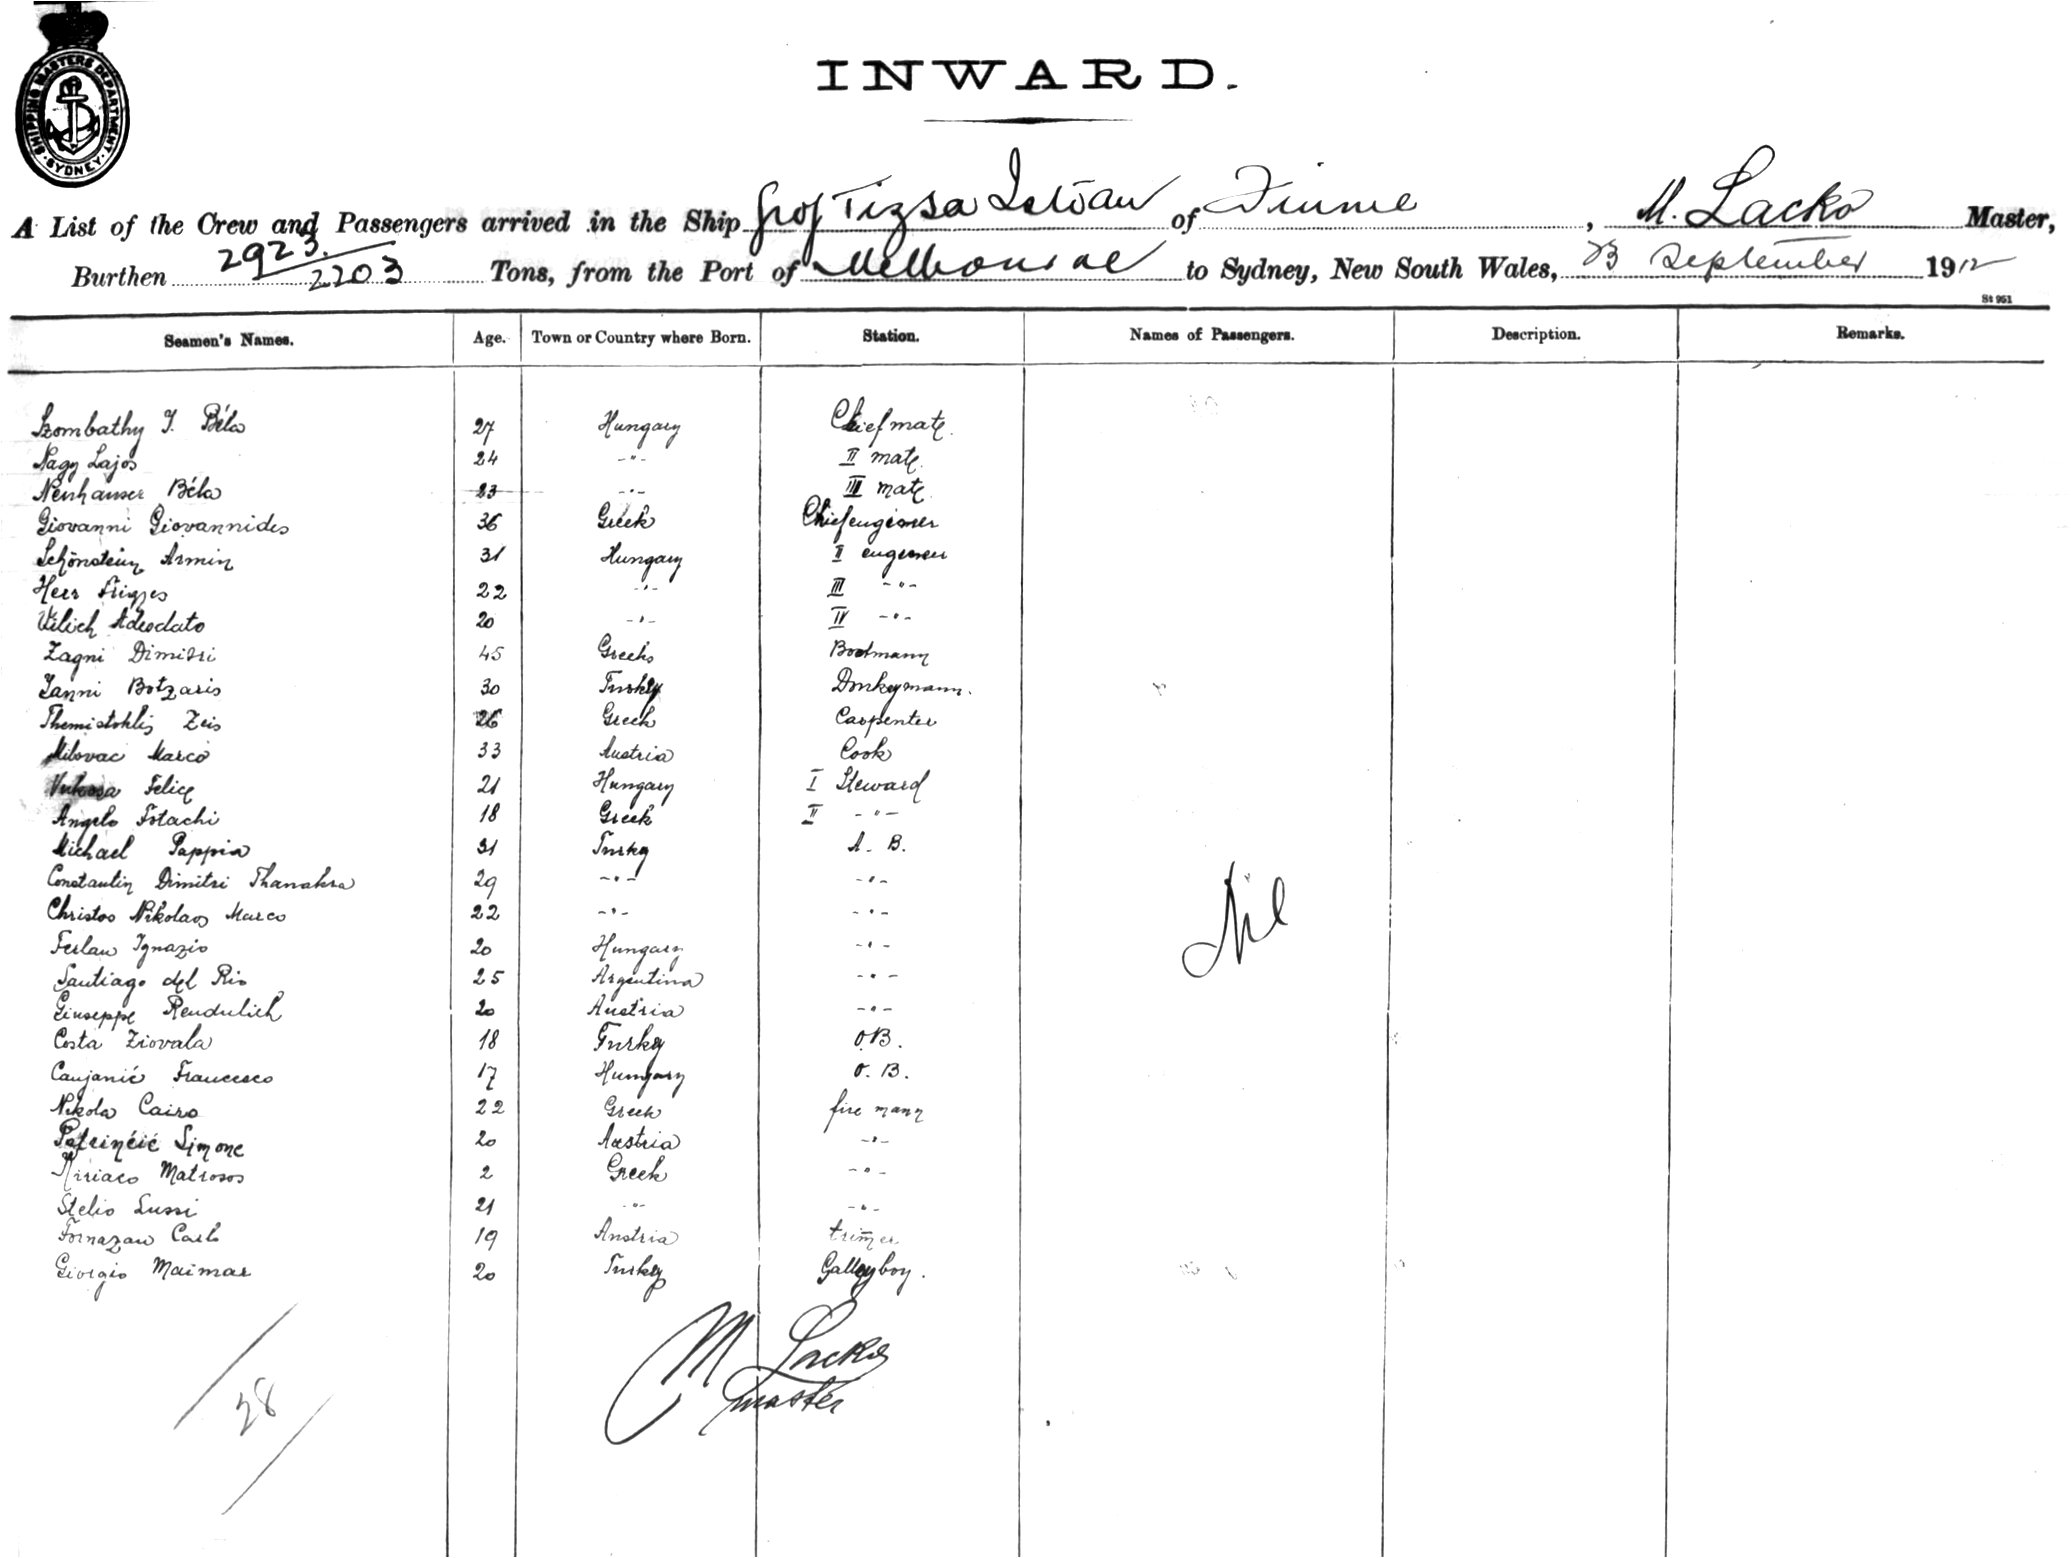 SHIPPING MASTERS DEPARTMENT · SYDNEY ·
INWARD.
A List of the Crew and Passengers arrived in the Ship Grof Tizsa Istvan of Fiume, M. Lacko Master,
Burthen 2923. / 2203 Tons, from the Port of Melbourne to Sydney, New South Wales, 23 September 1912
St 951
Seamen's Names. Age. Town or Country where Born. Station. Names of Passengers. Description. Remarks.
Szombathy I. Béla 27 Hungary Chiefmate.
Nagy Lajos 24 -"- II mate.
Neuhauser Béla 23 -"- III mate.
Giovanni Giovannides 36 Greek Chiefengineer
Schönstein Armin 31 Hungary II engineer
Herr Friges 22 -"- III -"-
Adeodato 20 -"- IV -"-
Zagni Dimitri 45 Greek Bootmann
Janni Botzaris 30 Turkey Donkeymann.
Themistoklis Zeis 26 Greek Carpenter
Milovac Marco 33 Austria Cook
Vukosa Felice 21 Hungary I Steward
Angelo Fotachi 18 Greek II -"-
Michael Pappia 31 Turkey A. B.
Constantin Dimitri Thanakra 29 -"- -"-
Christos Nikolaos Marco 22 -"- -"-
Ferlan Ignazio 20 Hungary -"-
Nil
Santiago del Rio 25 Argentina -"-
Giuseppe Rendulich 20 Austria -"-
Costa Ziovala 18 Turkey O.B.
Caujanić Francesco 17 Hungary O. B.
Nikola Cairo 22 Greek fire mann
Petrinčić Simone 20 Austria -"-
Kiriaco Matrosos 2 Greek -"-
Stelio Lussi 21 -"- -"-
Fornazan Carlo 19 Austria trimer
Giorgio Maimar 20 Turkey Galleyboy.
M Lacko
master
28